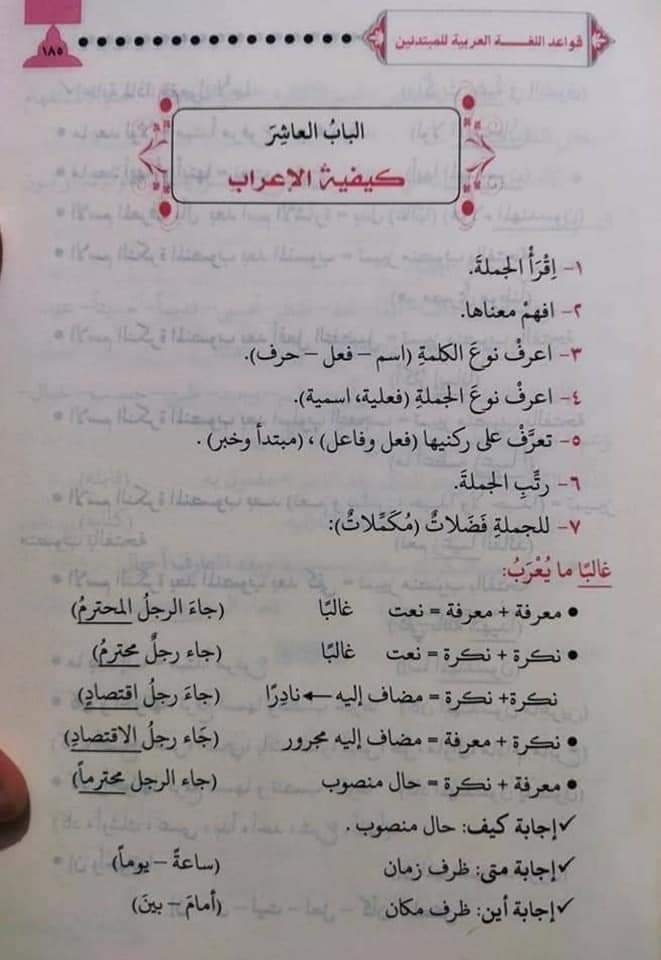 قواعد اللغة العربية للمبتدئين
١٨٥
البابُ العاشِرَ
كيفية الإعراب
١- اِقْرَأْ الجملةَ.
٢- افهمْ معناها.
٣- اعرفْ نوعَ الكلمةِ (اسم - فعل - حرف).
٤- اعرفْ نوعَ الجملةِ (فعلية، اسمية).
٥- تعرَّفْ على ركنيها (فعل وفاعل)، (مبتدأ وخبر).
٦- رتِّبِ الجملةَ.
٧- للجملةِ فَضَلاتٌ (مُكَمِّلاتٌ):
غالبًا ما يُعْرَبُ:
• معرفة + معرفة = نعت غالبًا (جاءَ الرجلُ المحترمُ)
• نكرة + نكرة = نعت غالبًا (جاء رجلٌ محترمُ)
نكرة+ نكرة = مضاف إليه ← نادِرًا (جاءَ رجلُ اقتصادٍ)
• نكرة + معرفة = مضاف إليه مجرور (جَاء رجلُ الاقتصادِ)
• معرفة + نكرة = حال منصوب (جاء الرجل محترماً)
✓ إجابة كيف: حال منصوب .
✓ إجابة متى: ظرف زمان (ساعةً - يوماً)
✓ إجابة أين: ظرف مكان (أمامَ - بينَ)